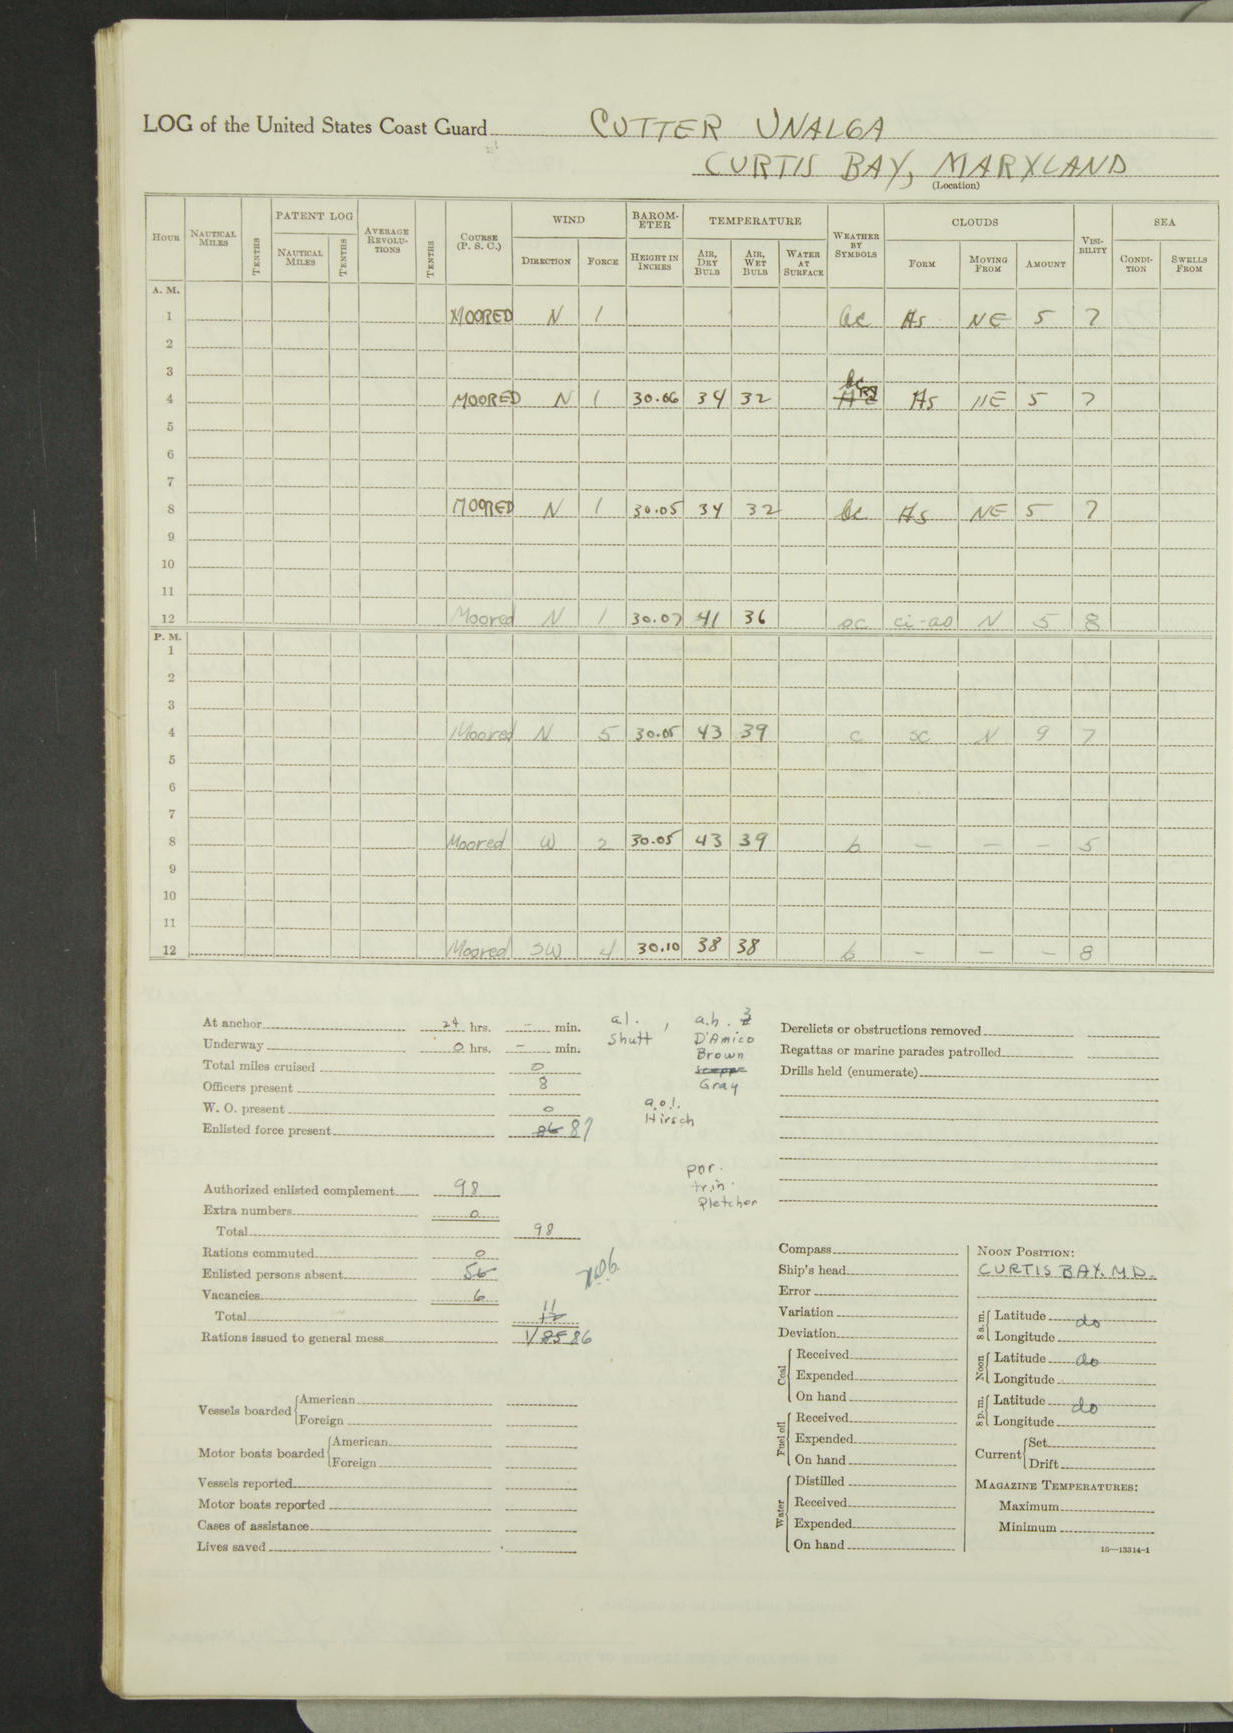 LOG of the United States Coast Guard CUTTER UNALGA
CURTIS BAY, MARYLAND
(Location)
HOUR NAUTICAL MILES TENTHS PATENT LOG NAUTICAL MILES TENTHS AVERAGE REVOLUTIONS TENTHS COURSE (P. S. C.) WIND DIRECTION FORCE BAROMETER HEIGHT IN INCHES TEMPERATURE AIR, DRY BULB AIR, WET BULB WATER AT SURFACE WEATHER BY SYMBOLS CLOUDS FORM MOVING FROM AMOUNT VISIBILITY SEA CONDITION SWELLS FROM
A. M.
1 MOORED N 1 bc As NE 5 7
2
3
bc
4 MOORED N 1 30.06 34 32 As NE 5 7
5
6
7
8 MOORED N 1 30.05 34 32 bc As NE 5 7
9
10
11
12 Moored N 1 30.07 41 36 ci-as N 5 8
P. M.
1
2
3
4 Moored N 5 30.05 43 39 c sc N 9 7
5
6
7
8 Moored W 2 30.05 43 39 b - - - 5
9
10
11
12 Moored SW 4 30.10 38 38 b - - - 8
At anchor 24 hrs. - min.
Underway 0 hrs. - min.
Total miles cruised 0
Officers present 8
W. O. present 0
Enlisted force present 86 87
Authorized enlisted complement 98
Extra numbers 0
Total 98
Rations commuted 0
Enlisted persons absent 56
Vacancies 6
11
Total 12
Rations issued to general mess 85 86
Vessels boarded American
Foreign
Motor boats boarded American
Foreign
Vessels reported
Motor boats reported
Cases of assistance
Lives saved
a.l.
Shutt
a.h. 3
D'Amico
Brown
Gray
a.o.l.
Hirsch
por.
trin.
Pletcher
Derelicts or obstructions removed
Regattas or marine parades patrolled
Drills held (enumerate)
Compass
Ship's head
Error
Variation
Deviation
Coal Received
Expended
On hand
Fuel oil Received
Expended
On hand
Water Distilled
Received
Expended
On hand
NOON POSITION:
CURTIS BAY. M.D.
8 a. m. Latitude do
Longitude
Noon Latitude do
Longitude
8 p. m. Latitude do
Longitude
Current Set
Drift
MAGAZINE TEMPERATURES:
Maximum
Minimum
16—13314-1